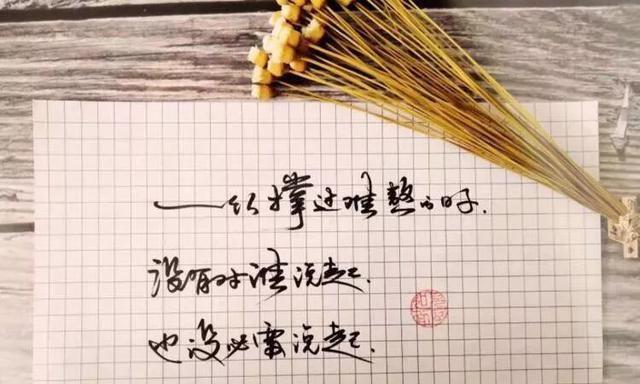 撑过难熬的日子.
没有对谁说起.
也没必要说起.